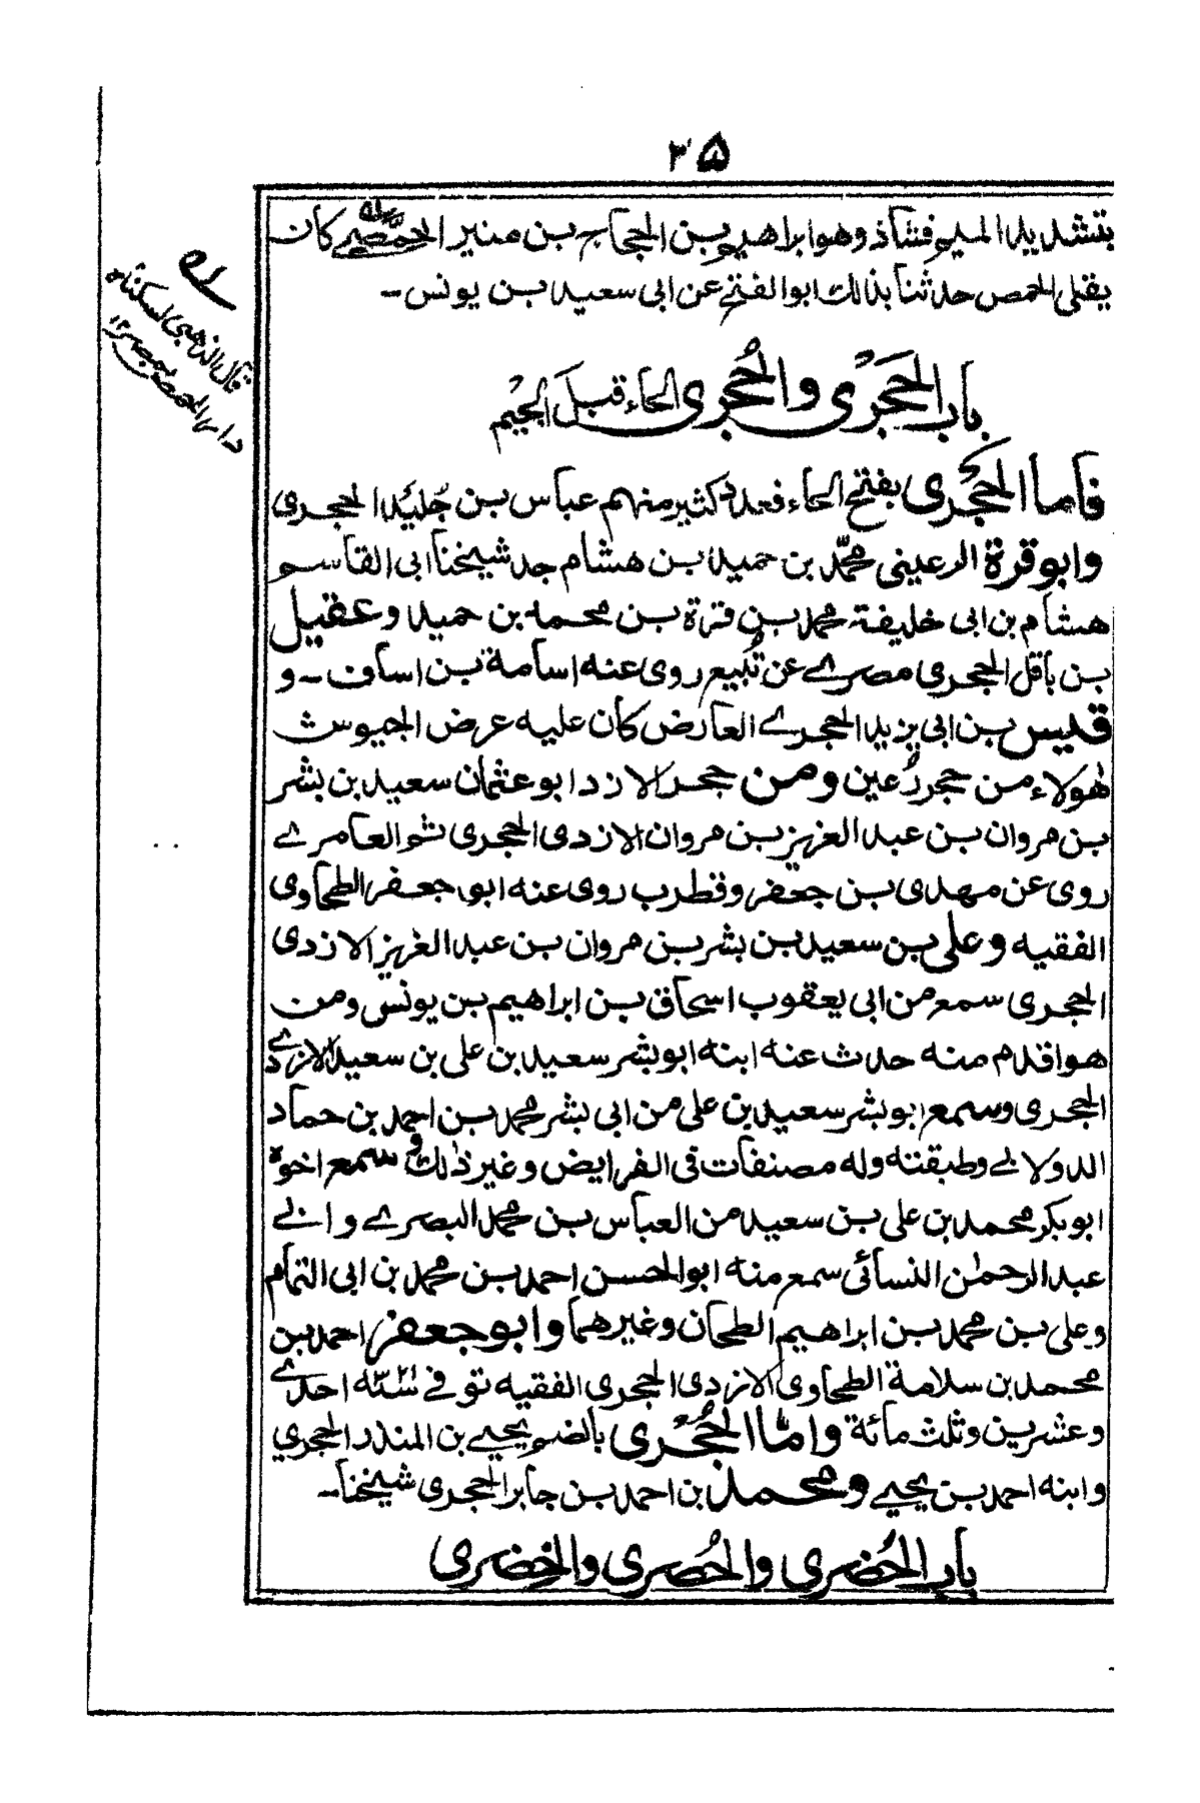 ٣٥
بتشديد الميم فشاذ وهو ابراهيم بن الحجاج بن منير الحمّصي كان
يقلى الحمص حدثنا بذلك ابو الفتح عن ابى سعيد بن يونس ـ
باب الحَجَرى والحُجرى الحاء قبل الجيم
فاما الحَجْرى بفتح الحاء فعدد كثير منهم عباس بن جُليد الحجرى
وابو قرة الرعينى محمّد بن حميد بن هشام جد شيخنا ابى القاسم
هشام بن ابى خليفة محمد بن قرة بن محمد بن حميد وعقيل
بن باقل الحجرى مصرى عن تُبيع روى عنه اسامة بن اساف ـ و
قيس بن ابى يزيد الحجرى العارض كان عليه عرض الجيوش
هؤلاء من حجر رُعين ومن حجر الازد ابو عثمان سعيد بن بشر
بن مروان بن عبد العزيز بن مروان الازدى الحجرى ثم العامرى
روى عن مهدى بن جعفر وقطرب روى عنه ابو جعفر الطحاوى
الفقيه وعلى بن سعيد بن بشر بن مروان بن عبد العزيز الازدى
الحجرى سمع من ابى يعقوب اسحاق بن ابراهيم بن يونس ومن
هو اقدم منه حدث عنه ابنه ابو بشر سعيد بن على بن سعيد الازدى
الحجرى وسمع ابو بشر سعيد بن على من ابى بشر محمد بن احمد بن حماد
الدولابى وطبقته وله مصنفات فى الفرايض وغير ذلك و سمع اخوه
ابو بكر محمد بن على بن سعيد من العباس بن محمد البصرى و ابى
عبد الرحمٰن النسائى سمع منه ابو الحسن احمد بن محمد بن ابى التمام
وعلى بن محمد بن ابراهيم الطحان وغيرهما وابو جعفر احمد بن
محمد بن سلامة الطحاوى الازدى الحجرى الفقيه توفى سنة احدى
وعشرين وثلث مائة وامّا الحُجْرى بالضم يحيى بن المنذر الحجرى
وابنه احمد بن يحيى ومحمد بن احمد بن جابر الحجرى شيخنا ـ
باب الحُضرى والحُصرى والخِضرى
له
قال الذهبى لسكناه
دار الحمص بمصر ١٢